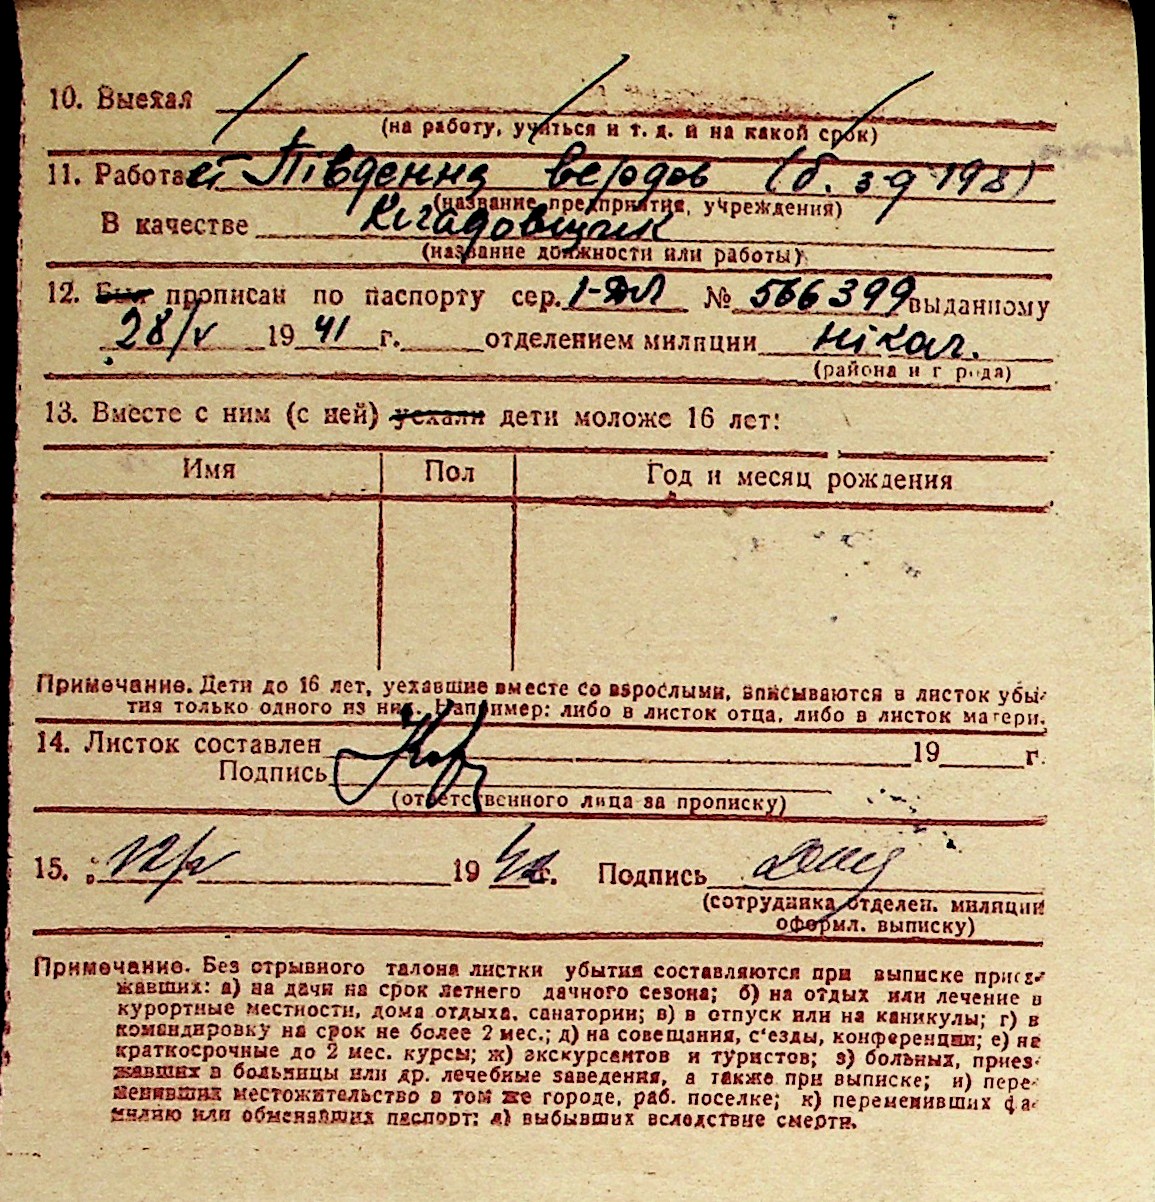 10. Выехал
(на работу, учиться и т. д. и на какой срок)
11. Работает Південна верфь (б. з-д 198)
(название предприятия, учреждения)
В качестве
(название должности или работы)
12. Был прописан по паспорту сер. № 566399 выданному
28/V 1941 г. отделением милиции Нікол.
(района и города)
13. Вместе с ним (с ней) уехали дети моложе 16 лет:
Имя Пол Год и месяц рождения
Примечание. Дети до 16 лет, уехавшие вместе со взрослыми, вписываются в листок убы-
тия только одного из них. Например: либо в листок отца, либо в листок матери.
14. Листок составлен 19 г.
Подпись
(ответственного лица за прописку)
15. 19 г. Подпись
(сотрудника отделен. милиции
оформл. выписку)
Примечание. Без отрывного талона листки убытия составляются при выписке приез-
жавших: а) на дачи на срок летнего дачного сезона; б) на отдых или лечение в
курортные местности, дома отдыха, санатории; в) в отпуск или на каникулы; г) в
командировку на срок не более 2 мес.; д) на совещания, с'езды, конференции; е) на
краткосрочные до 2 мес. курсы; ж) экскурсантов и туристов; з) больных, приез-
жавших в больницы или др. лечебные заведения, а также при выписке; и) пере-
менивших местожительство в том же городе, раб. поселке; к) переменивших фа-
милию или обменявших паспорт; л) выбывших вследствие смерти.